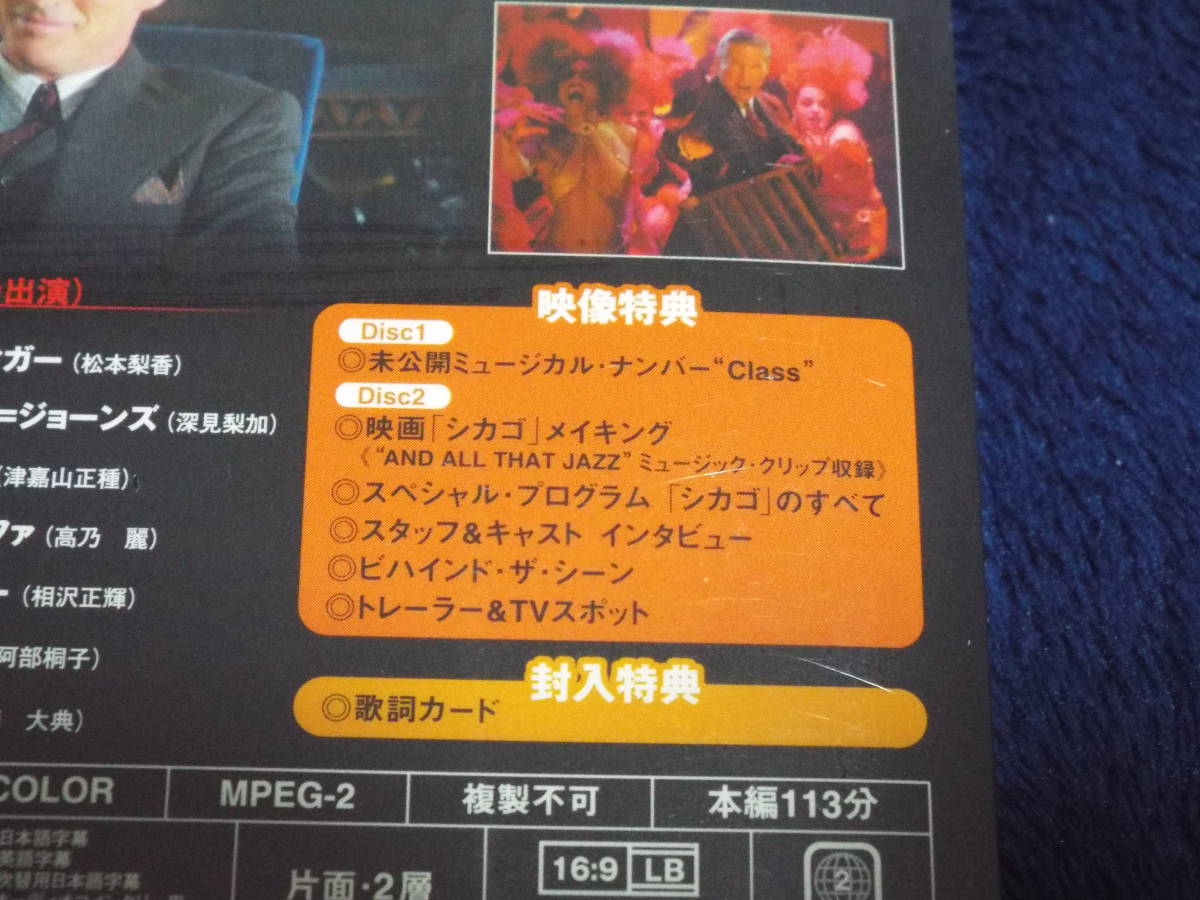 出演）
ガー（松本梨香）
＝ジョーンズ（深見梨加）
（津嘉山正種）
ファ（高乃　麗）
ー（相沢正輝）
阿部桐子）
大典）
映像特典
Disc1
◎未公開ミュージカル・ナンバー“Class”
Disc2
◎映画「シカゴ」メイキング
《“AND ALL THAT JAZZ”ミュージック・クリップ収録》
◎スペシャル・プログラム「シカゴ」のすべて
◎スタッフ&キャスト インタビュー
◎ビハインド・ザ・シーン
◎トレーラー&TVスポット
封入特典
◎歌詞カード
COLOR
MPEG-2
複製不可
本編113分
日本語字幕
英語字幕
吹替用日本語字幕
片面・2層
16:9 LB
2